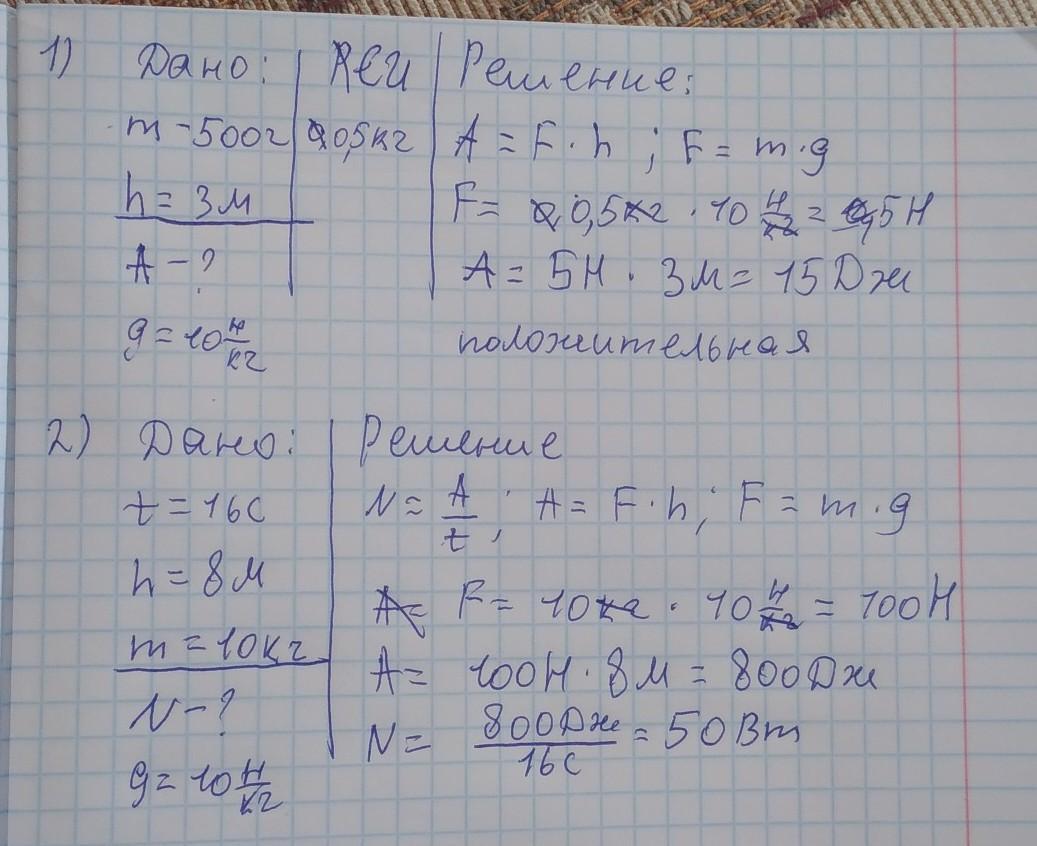 1) Дано: СИ Решение:
m - 500г 0,5кг A = F · h ; F = m · g
h = 3м F = 0,5кг · 10 Н/кг = 5Н
A - ? A = 5Н · 3м = 15Дж
g = 10 Н/кг положительная
2) Дано: Решение
t = 16с N = A/t ; A = F · h ; F = m · g
h = 8м F = 10кг · 10 Н/кг = 100Н
m = 10кг A = 100Н · 8м = 800Дж
N - ? N = 800Дж/16с = 50Вт
g = 10 Н/кг